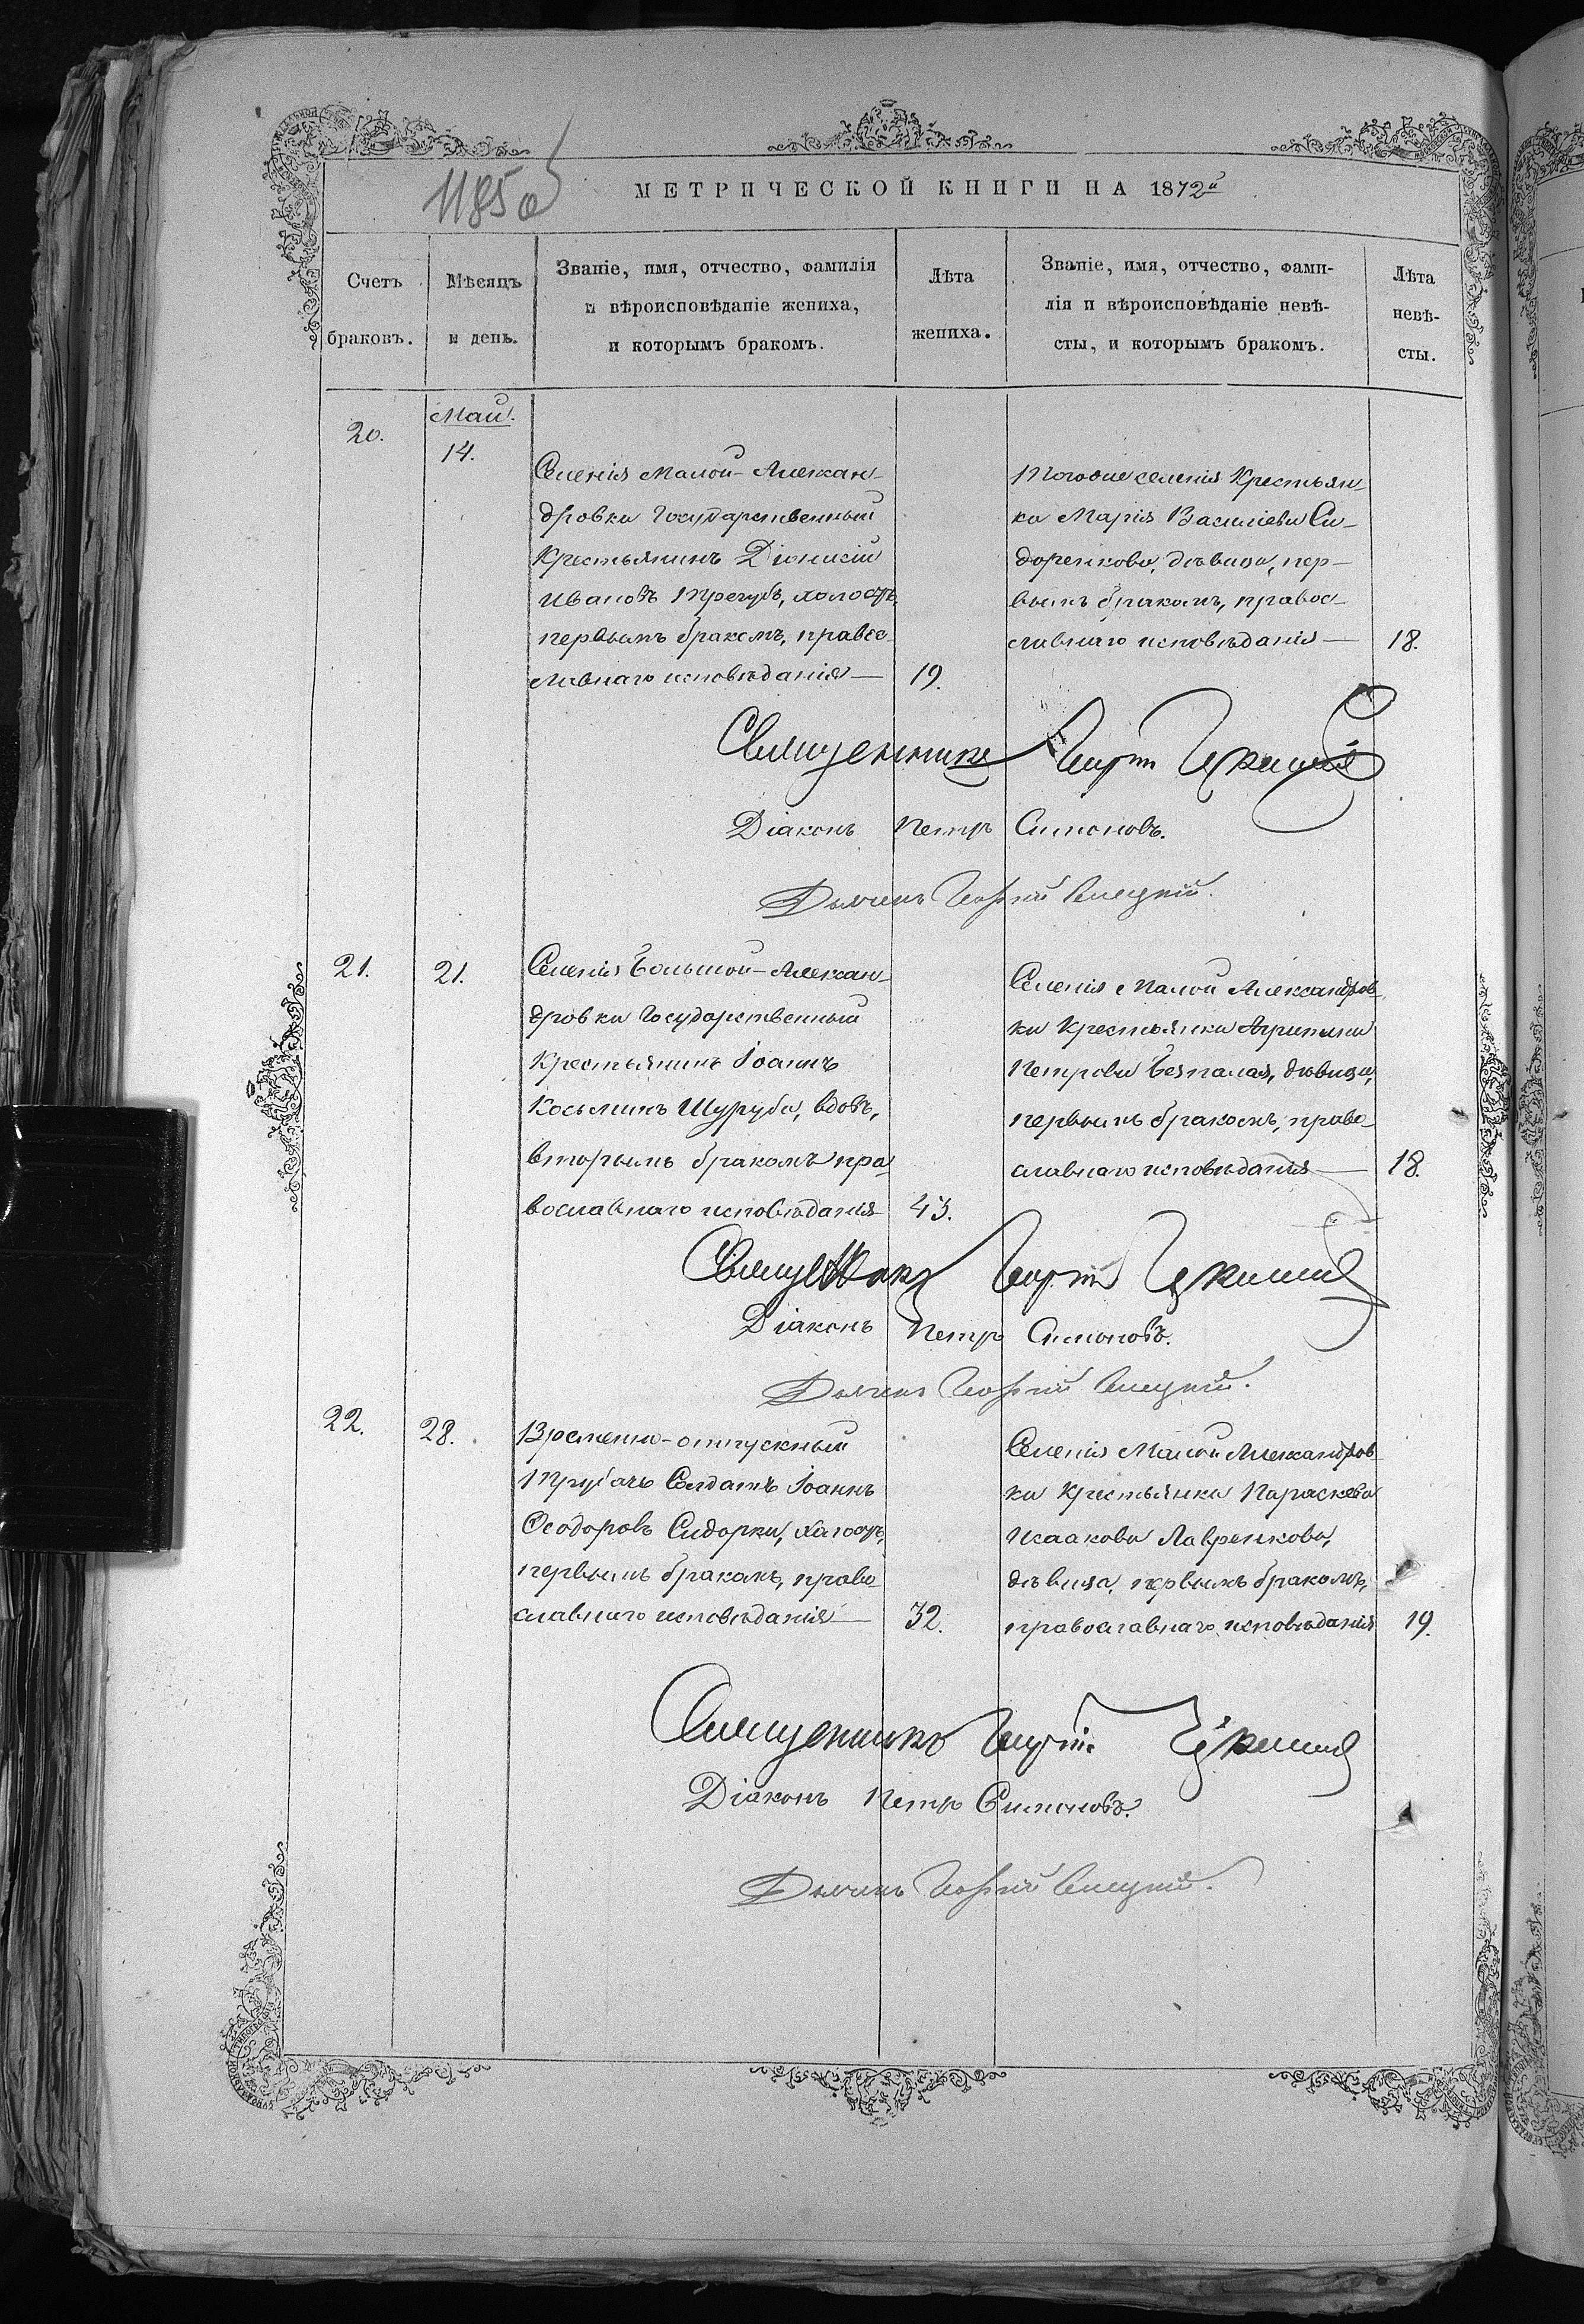 1185об
МЕТРИЧЕСКОЙ КНИГИ НА 1872й
Счетъ браковъ.
Мѣсяцъ и день.
Званіе, имя, отчество, фамилія
и вѣроисповѣданіе жениха,
и которымъ бракомъ.
Лѣта жениха.
Званіе, имя, отчество, фами-
лія и вѣроисповѣданіе невѣ-
сты, и которымъ бракомъ.
Лѣта невѣ-
сты.
20.
Маій.
14.
Селенія Малой-Алексан-
дровки Государственный
Крестьянинъ Діонисій
Ивановъ Трегубъ, холостъ,
первымъ бракомъ, правос-
лавнаго исповѣданія—
19.
Тогоже селенія Крестьян-
ка Марія Василіева Си-
доренкова, дѣвица, пер-
вымъ бракомъ, правос-
лавнаго исповѣданія—
18.
Священникъ
Діаконъ Петръ Симоновъ.
Дьячекъ Георгій
21.
21.
Селенія Большой-Алексан-
дровки Государственный
Крестьянинъ Іоаннъ
Косьминъ Шуруба, вдовъ,
вторымъ бракомъ пра
вославнаго исповѣданія
43.
Селенія Малой Александров-
ки Крестьянка Агрипина
Петрова Безпалая, дѣвица,
первымъ бракомъ, право-
славнаго исповѣданія—
18.
Священникъ
Діаконъ Петръ Симоновъ.
Дьячекъ Георгій
22.
28.
Временно-отпускный
Трубачъ Солдатъ Іоаннъ
Ѳеодоровъ Сидорки, холостъ,
первымъ бракомъ, право-
славнаго исповѣданія—
32.
Селенія Малой Александров-
ки Крестьянка Параскева
Исаакова Лавренкова,
дѣвица, первымъ бракомъ,
православнаго исповѣданія
19.
Священникъ
Діаконъ Петръ Симоновъ.
Дьячекъ Георгій